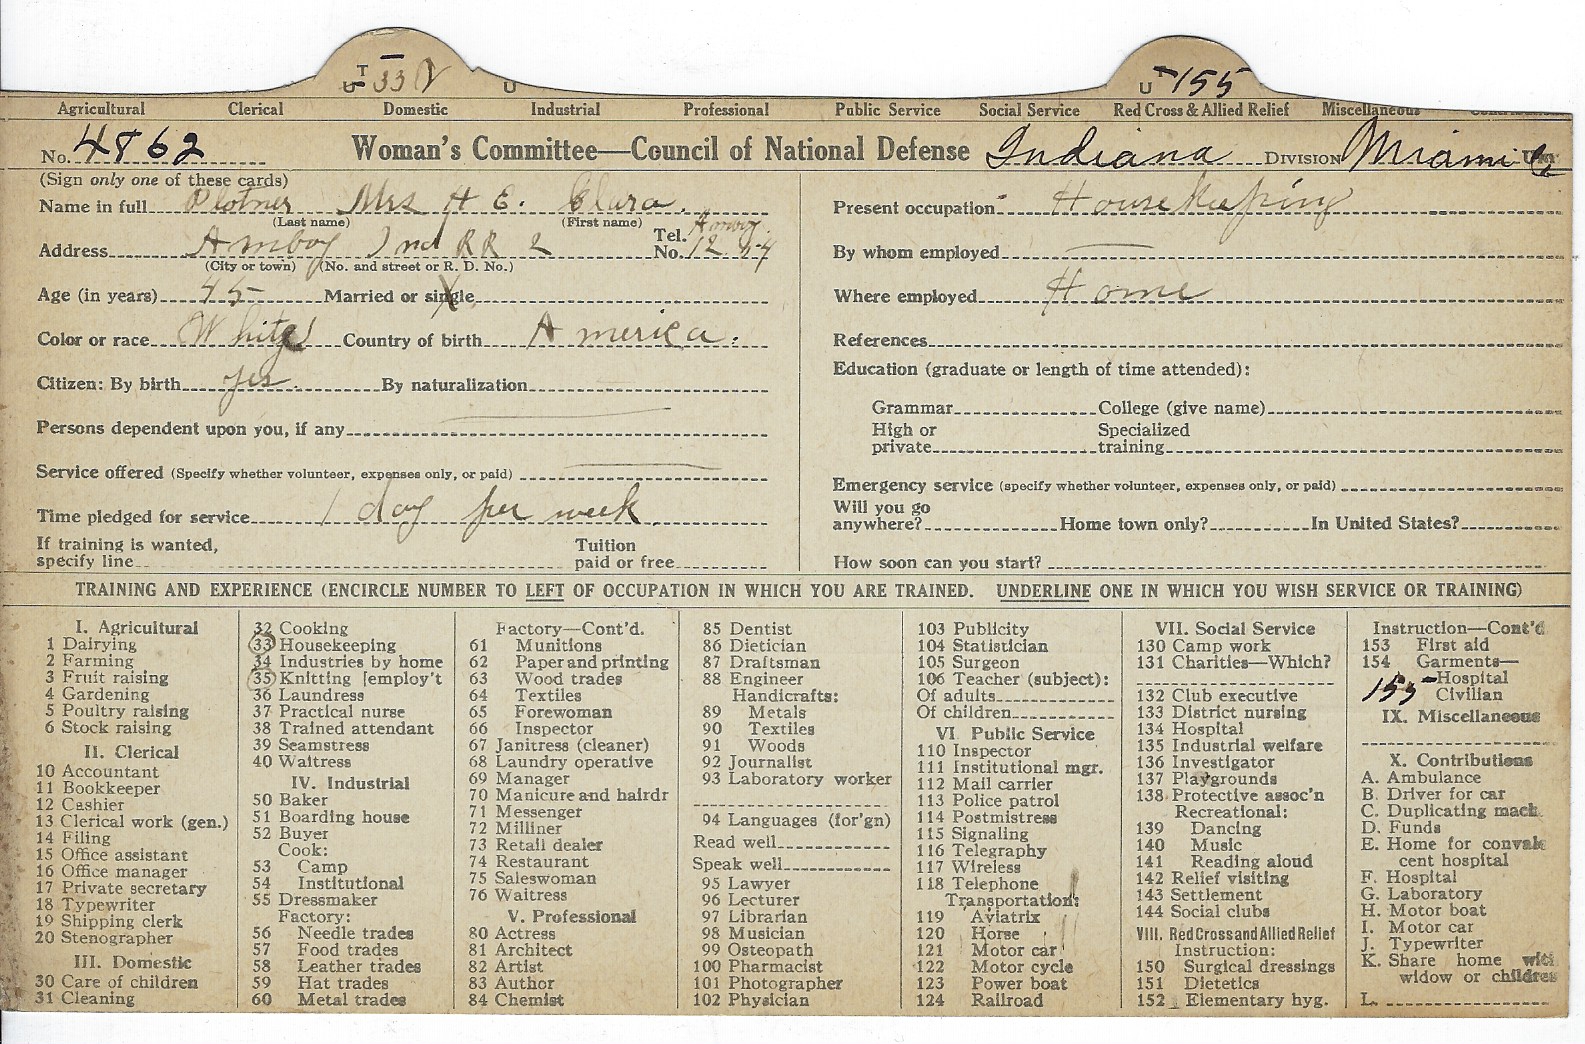 T 33 V
U
U
T 155
U
Agricultural Clerical Domestic Industrial Professional Public Service Social Service Red Cross & Allied Relief Miscellaneous
No. 4862 Woman's Committee—Council of National Defense Indiana DIVISION Miami
(Sign only one of these cards)
Name in full Plotner Mrs H E. Clara.
(Last name) (First name)
Address Amboy Ind RR 2 Tel. No. 12
(City or town) (No. and street or R. D. No.)
Age (in years) 45 Married or single
Color or race White Country of birth America.
Citizen: By birth yes. By naturalization
Persons dependent upon you, if any
Service offered (Specify whether volunteer, expenses only, or paid)
Time pledged for service 1 day per week
If training is wanted, Tuition
specify line paid or free
Present occupation Housekeeping
By whom employed
Where employed Home
References
Education (graduate or length of time attended):
Grammar College (give name)
High or Specialized
private training
Emergency service (specify whether volunteer, expenses only, or paid)
Will you go
anywhere? Home town only? In United States?
How soon can you start?
TRAINING AND EXPERIENCE (ENCIRCLE NUMBER TO LEFT OF OCCUPATION IN WHICH YOU ARE TRAINED. UNDERLINE ONE IN WHICH YOU WISH SERVICE OR TRAINING)
I. Agricultural
1 Dairying
2 Farming
3 Fruit raising
4 Gardening
5 Poultry raising
6 Stock raising
II. Clerical
10 Accountant
11 Bookkeeper
12 Cashier
13 Clerical work (gen.)
14 Filing
15 Office assistant
16 Office manager
17 Private secretary
18 Typewriter
19 Shipping clerk
20 Stenographer
III. Domestic
30 Care of children
31 Cleaning
32 Cooking
33 Housekeeping
34 Industries by home
35 Knitting [employ't
36 Laundress
37 Practical nurse
38 Trained attendant
39 Seamstress
40 Waitress
IV. Industrial
50 Baker
51 Boarding house
52 Buyer
Cook:
53 Camp
54 Institutional
55 Dressmaker
Factory:
56 Needle trades
57 Food trades
58 Leather trades
59 Hat trades
60 Metal trades
Factory—Cont'd.
61 Munitions
62 Paper and printing
63 Wood trades
64 Textiles
65 Forewoman
66 Inspector
67 Janitress (cleaner)
68 Laundry operative
69 Manager
70 Manicure and hairdr
71 Messenger
72 Milliner
73 Retail dealer
74 Restaurant
75 Saleswoman
76 Waitress
V. Professional
80 Actress
81 Architect
82 Artist
83 Author
84 Chemist
85 Dentist
86 Dietician
87 Draftsman
88 Engineer
Handicrafts:
89 Metals
90 Textiles
91 Woods
92 Journalist
93 Laboratory worker
94 Languages (for'gn)
Read well
Speak well
95 Lawyer
96 Lecturer
97 Librarian
98 Musician
99 Osteopath
100 Pharmacist
101 Photographer
102 Physician
103 Publicity
104 Statistician
105 Surgeon
106 Teacher (subject):
Of adults
Of children
VI Public Service
110 Inspector
111 Institutional mgr.
112 Mail carrier
113 Police patrol
114 Postmistress
115 Signaling
116 Telegraphy
117 Wireless
118 Telephone
Transportation:
119 Aviatrix
120 Horse
121 Motor car
122 Motor cycle
123 Power boat
124 Railroad
VII. Social Service
130 Camp work
131 Charities—Which?
132 Club executive
133 District nursing
134 Hospital
135 Industrial welfare
136 Investigator
137 Playgrounds
138 Protective assoc'n
Recreational:
139 Dancing
140 Music
141 Reading aloud
142 Relief visiting
143 Settlement
144 Social clubs
VIII. Red Cross and Allied Relief
Instruction:
150 Surgical dressings
151 Dietetics
152 Elementary hyg.
Instruction—Cont'd
153 First aid
154 Garments—
Hospital
155 Civilian
IX. Miscellaneous
X. Contributions
A. Ambulance
B. Driver for car
C. Duplicating mach.
D. Funds
E. Home for convales
cent hospital
F. Hospital
G. Laboratory
H. Motor boat
I. Motor car
J. Typewriter
K. Share home with
widow or children
L.